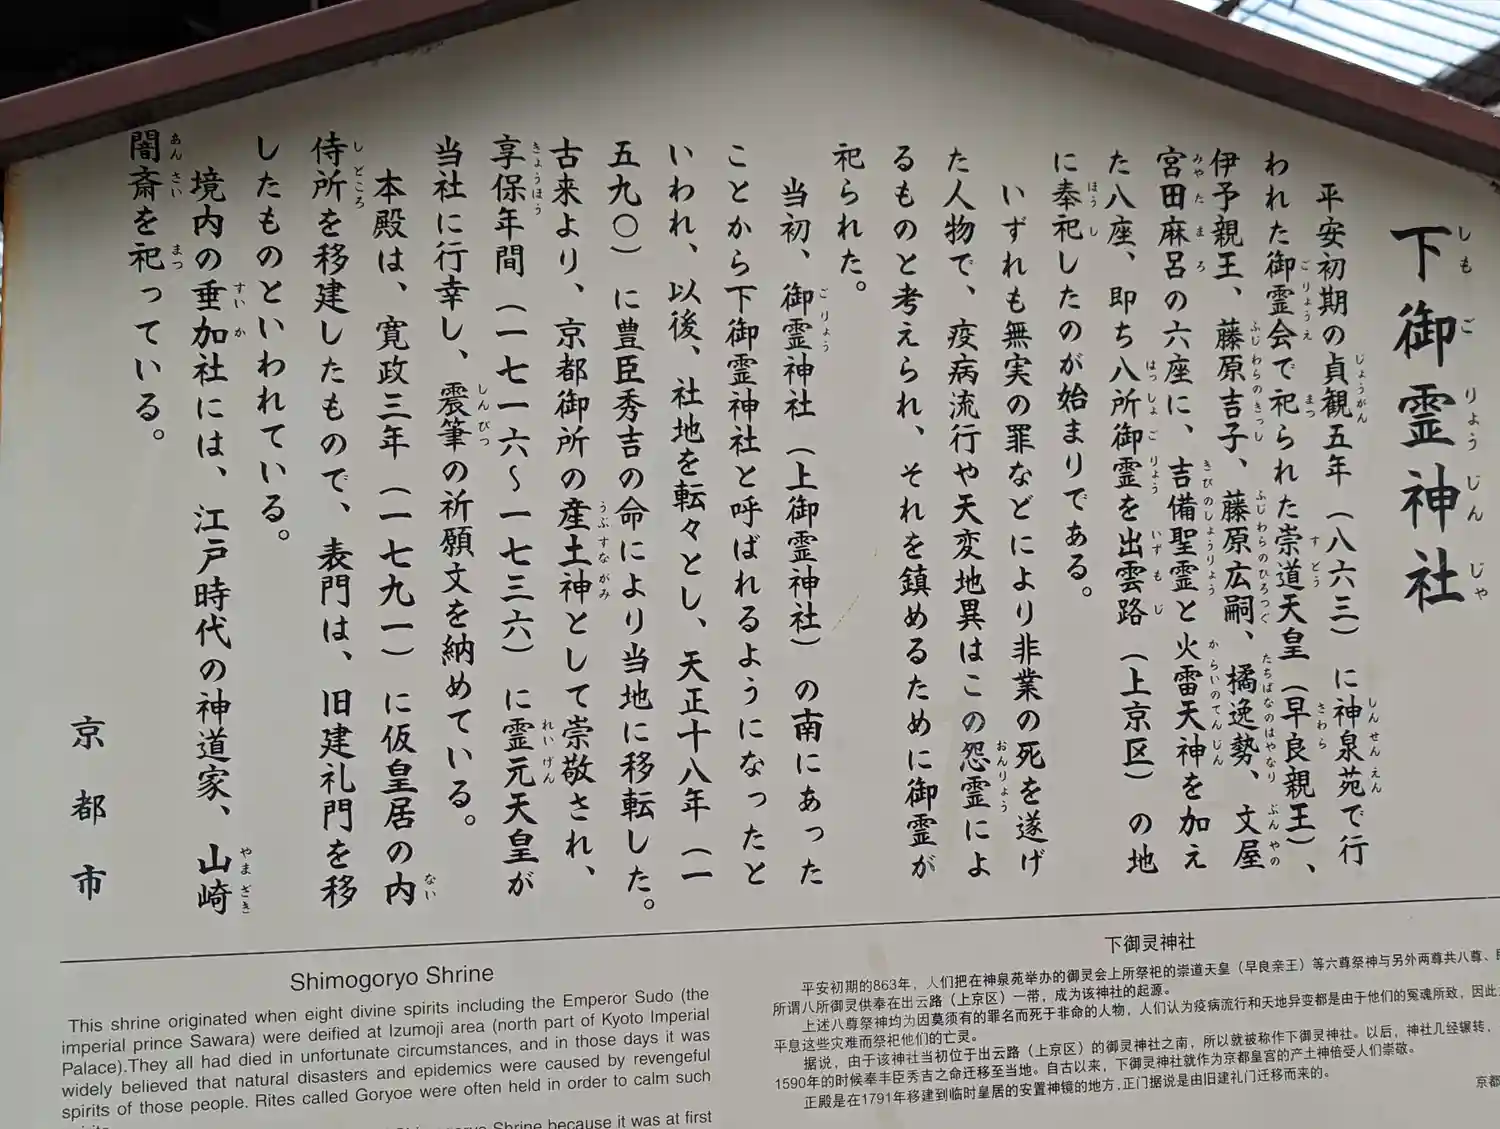 下御霊神社
しもごりょうじんじゃ
平安初期の貞観五年（八六三）に神泉苑で行
じょうがん しんせんえん
われた御霊会で祀られた崇道天皇（早良親王）、
ごりょうえ まつ すどう さわら
伊予親王、藤原吉子、藤原広嗣、橘逸勢、文屋
ふじわらのきっし ふじわらのひろつぐ たちばなのはやなり ぶんやの
宮田麻呂の六座に、吉備聖霊と火雷天神を加え
みやたまろ きびのしょうりょう からいのてんじん
た八座、即ち八所御霊を出雲路（上京区）の地
はっしょごりょう いずもじ
に奉祀したのが始まりである。
ほうし
いずれも無実の罪などにより非業の死を遂げ
た人物で、疫病流行や天変地異はこの怨霊によ
おんりょう
るものと考えられ、それを鎮めるために御霊が
祀られた。
当初、御霊神社（上御霊神社）の南にあった
ごりょう
ことから下御霊神社と呼ばれるようになったと
いわれ、以後、社地を転々とし、天正十八年（一
五九〇）に豊臣秀吉の命により当地に移転した。
古来より、京都御所の産土神として崇敬され、
うぶすながみ
享保年間（一七一六～一七三六）に霊元天皇が
きょうほう れいげん
当社に行幸し、震筆の祈願文を納めている。
しんぴつ
本殿は、寛政三年（一七九一）に仮皇居の内
ない
侍所を移建したもので、表門は、旧建礼門を移
しどころ
したものといわれている。
境内の垂加社には、江戸時代の神道家、山崎
すいか やまざき
闇斎を祀っている。
あんさい まつ
京都市
Shimogoryo Shrine
This shrine originated when eight divine spirits including the Emperor Sudo (the
imperial prince Sawara) were deified at Izumoji area (north part of Kyoto Imperial
Palace).They all had died in unfortunate circumstances, and in those days it was
widely believed that natural disasters and epidemics were caused by revengeful
spirits of those people. Rites called Goryoe were often held in order to calm such
Shrine because it was at first
下御灵神社
平安初期的863年，人们把在神泉苑举办的御灵会上所祭祀的崇道天皇（早良亲王）等六尊祭神与另外两尊共八尊、
所谓八所御灵供奉在出云路（上京区）一带，成为该神社的起源。
上述八尊祭神均为因莫须有的罪名而死于非命的人物，人们认为疫病流行和天地异变都是由于他们的冤魂所致，因此
平息这些灾难而祭祀他们的亡灵。
据说，由于该神社当初位于出云路（上京区）的御灵神社之南，所以就被称作下御灵神社。以后，神社几经辗转，
1590年的时候奉丰臣秀吉之命迁移至当地。自古以来，下御灵神社就作为京都皇宫的产土神倍受人们崇敬。
正殿是在1791年移建到临时皇居的安置神镜的地方，正门据说是由旧建礼门迁移而来的。
京都